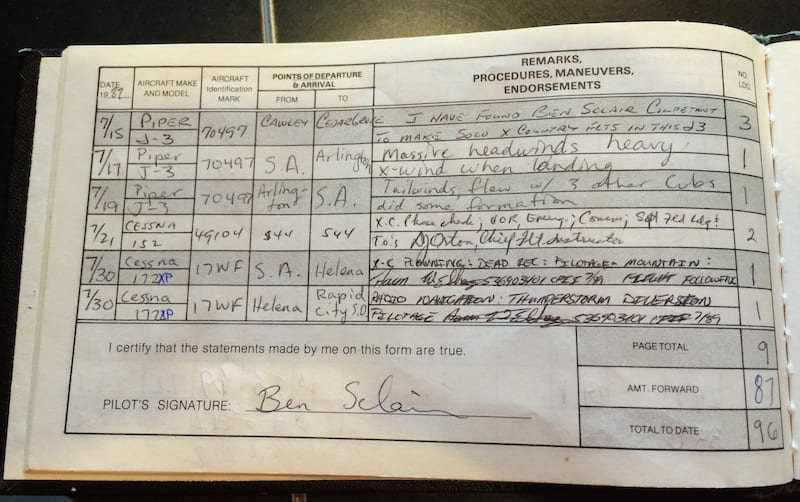 DATE 1987 AIRCRAFT MAKE AND MODEL AIRCRAFT Identification MARK POINTS OF DEPARTURE & ARRIVAL FROM TO REMARKS, PROCEDURES, MANEUVERS, ENDORSEMENTS NO. LDG.
7/15 PIPER J-3 70497 CAWLEY I HAVE FOUND BEN SCLAIR COMPETANT
TO MAKE SOLO X COUNTRY FLTS IN THIS J3 3
7/17 Piper J-3 70497 S.A. Arlington Massive headwinds heavy
x-wind when landing 1
7/19 Piper J-3 70497 Arling-ton S.A. Tailwinds, flew w/ 3 other Cubs
did some formation 1
7/21 CESSNA 152 49104 S44 S44 X.C. Phase check; VOR Emerg.; Comm;
T.O.'s Orton, Chief Flt. Instructor 2
7/30 Cessna 172XP 17WF S.A. Helena X-C PLANNING: DEAD REC: PILOTAGE: MOUNTAIN:
536903101 CFII FLIGHT FOLLOWING 1
7/30 Cessna 172XP 17WF Helena Rapid City S.D. RADIO NAVIGATION: THUNDERSTORM DIVERSION
PILOTAGE 536903101 7/89 1
I certify that the statements made by me on this form are true.
PILOT'S SIGNATURE: Ben Sclair
PAGE TOTAL 9
AMT. FORWARD 87
TOTAL TO DATE 96